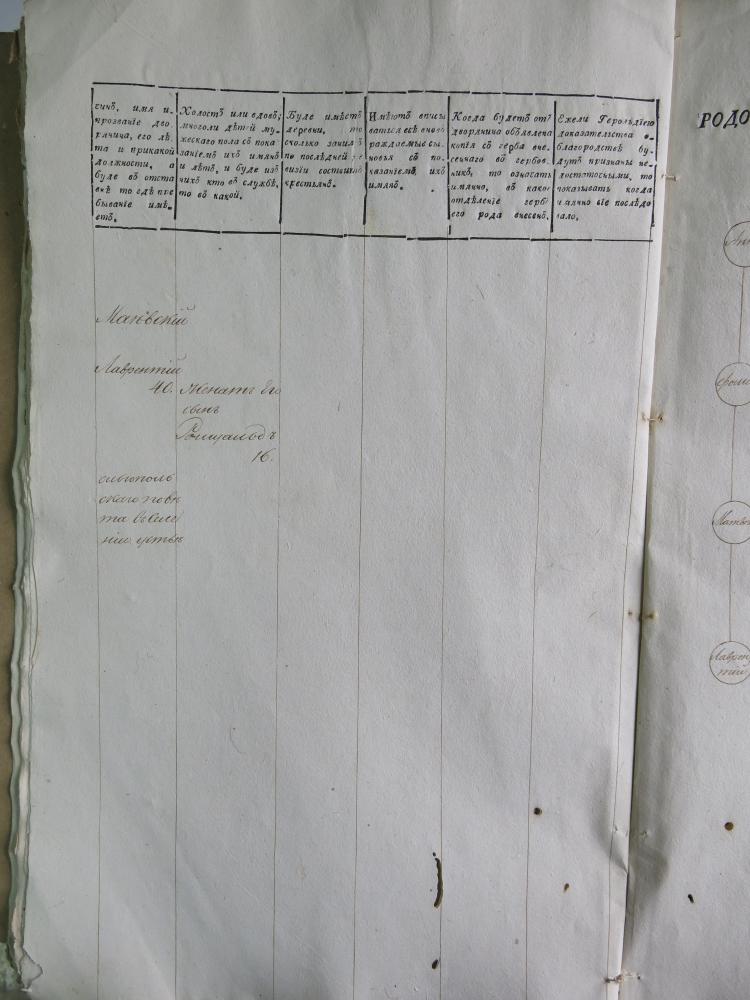 чинъ, имя и
прозваніе дво
рянина, его лѣ
та и прикакой
должности, а
буде въ отста
вкѣ то гдѣ пре
бываніе имѣ-
етъ.
Холостъ или вдовъ;
многоли дѣтей му-
жескаго пола съ пока
заніемъ ихъ имянъ
и лѣтъ, и буде изъ
нихъ кто въ службѣ,
то въ какой.
Буде имѣетъ
деревни, то
сколько занимъ
по последней ре
визіи состоитъ
крестьянъ.
Имѣютъ вписы
ваться всѣ вновь
раждаемые сы-
новья съ по-
казаніемъ ихъ
имянъ.
Когда будетъ отъ
дворянина объявлена
копія съ герба вне-
сеннаго въ гербов-
никъ, то означать
имянно, въ какое
отдѣленіе гербъ
его рода внесенъ.
Ежели Герольдіею
доказательства о
благородствѣ бу-
дутъ признаны не-
достаточными, то
показывать когда
имянно віе послѣдо
вало.
Маевскій
Лаврентій
40. Женатъ Его
сынъ
Ромуальдъ
16.
польскаго
РОДО
Матвѣ
Лаврен
тій